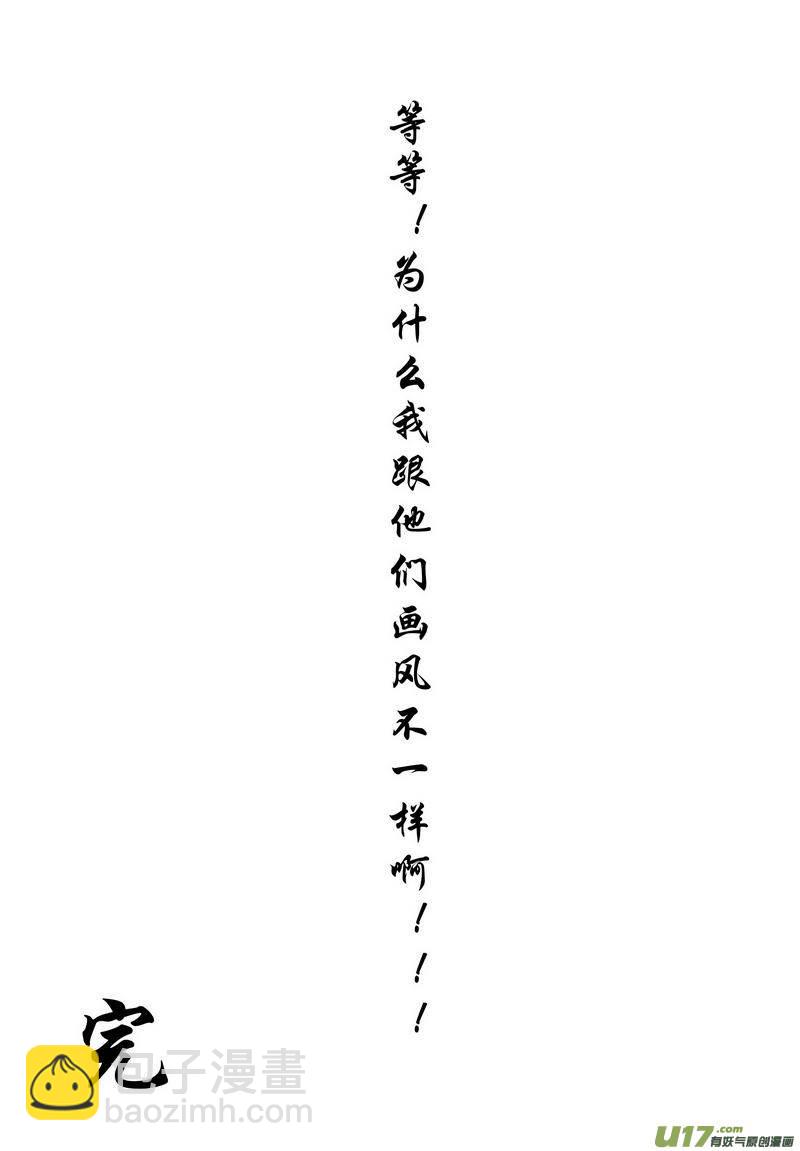 等等！为什么我跟他们画风不一样啊！！！
完
包子漫畫
baozimh.com
U17.com
有妖气原创漫画